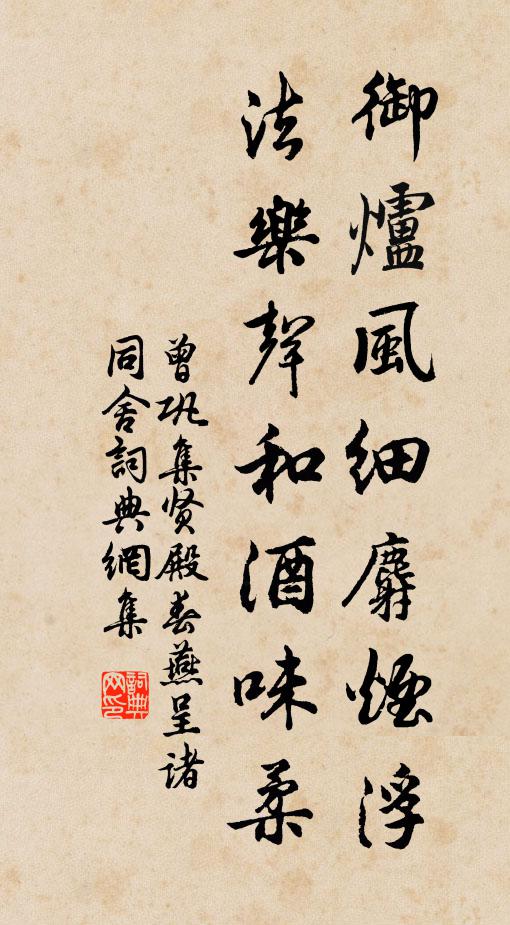 御爐風細麝煙浮
法樂聲和酒味柔
曾巩集贤殿春燕呈诸
同舍詞典網集
詞典
网印